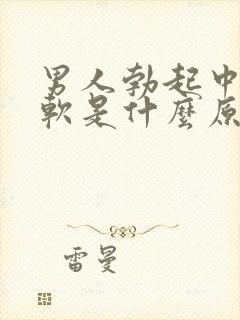 男人勃起中
軟是什麼原
雷曼